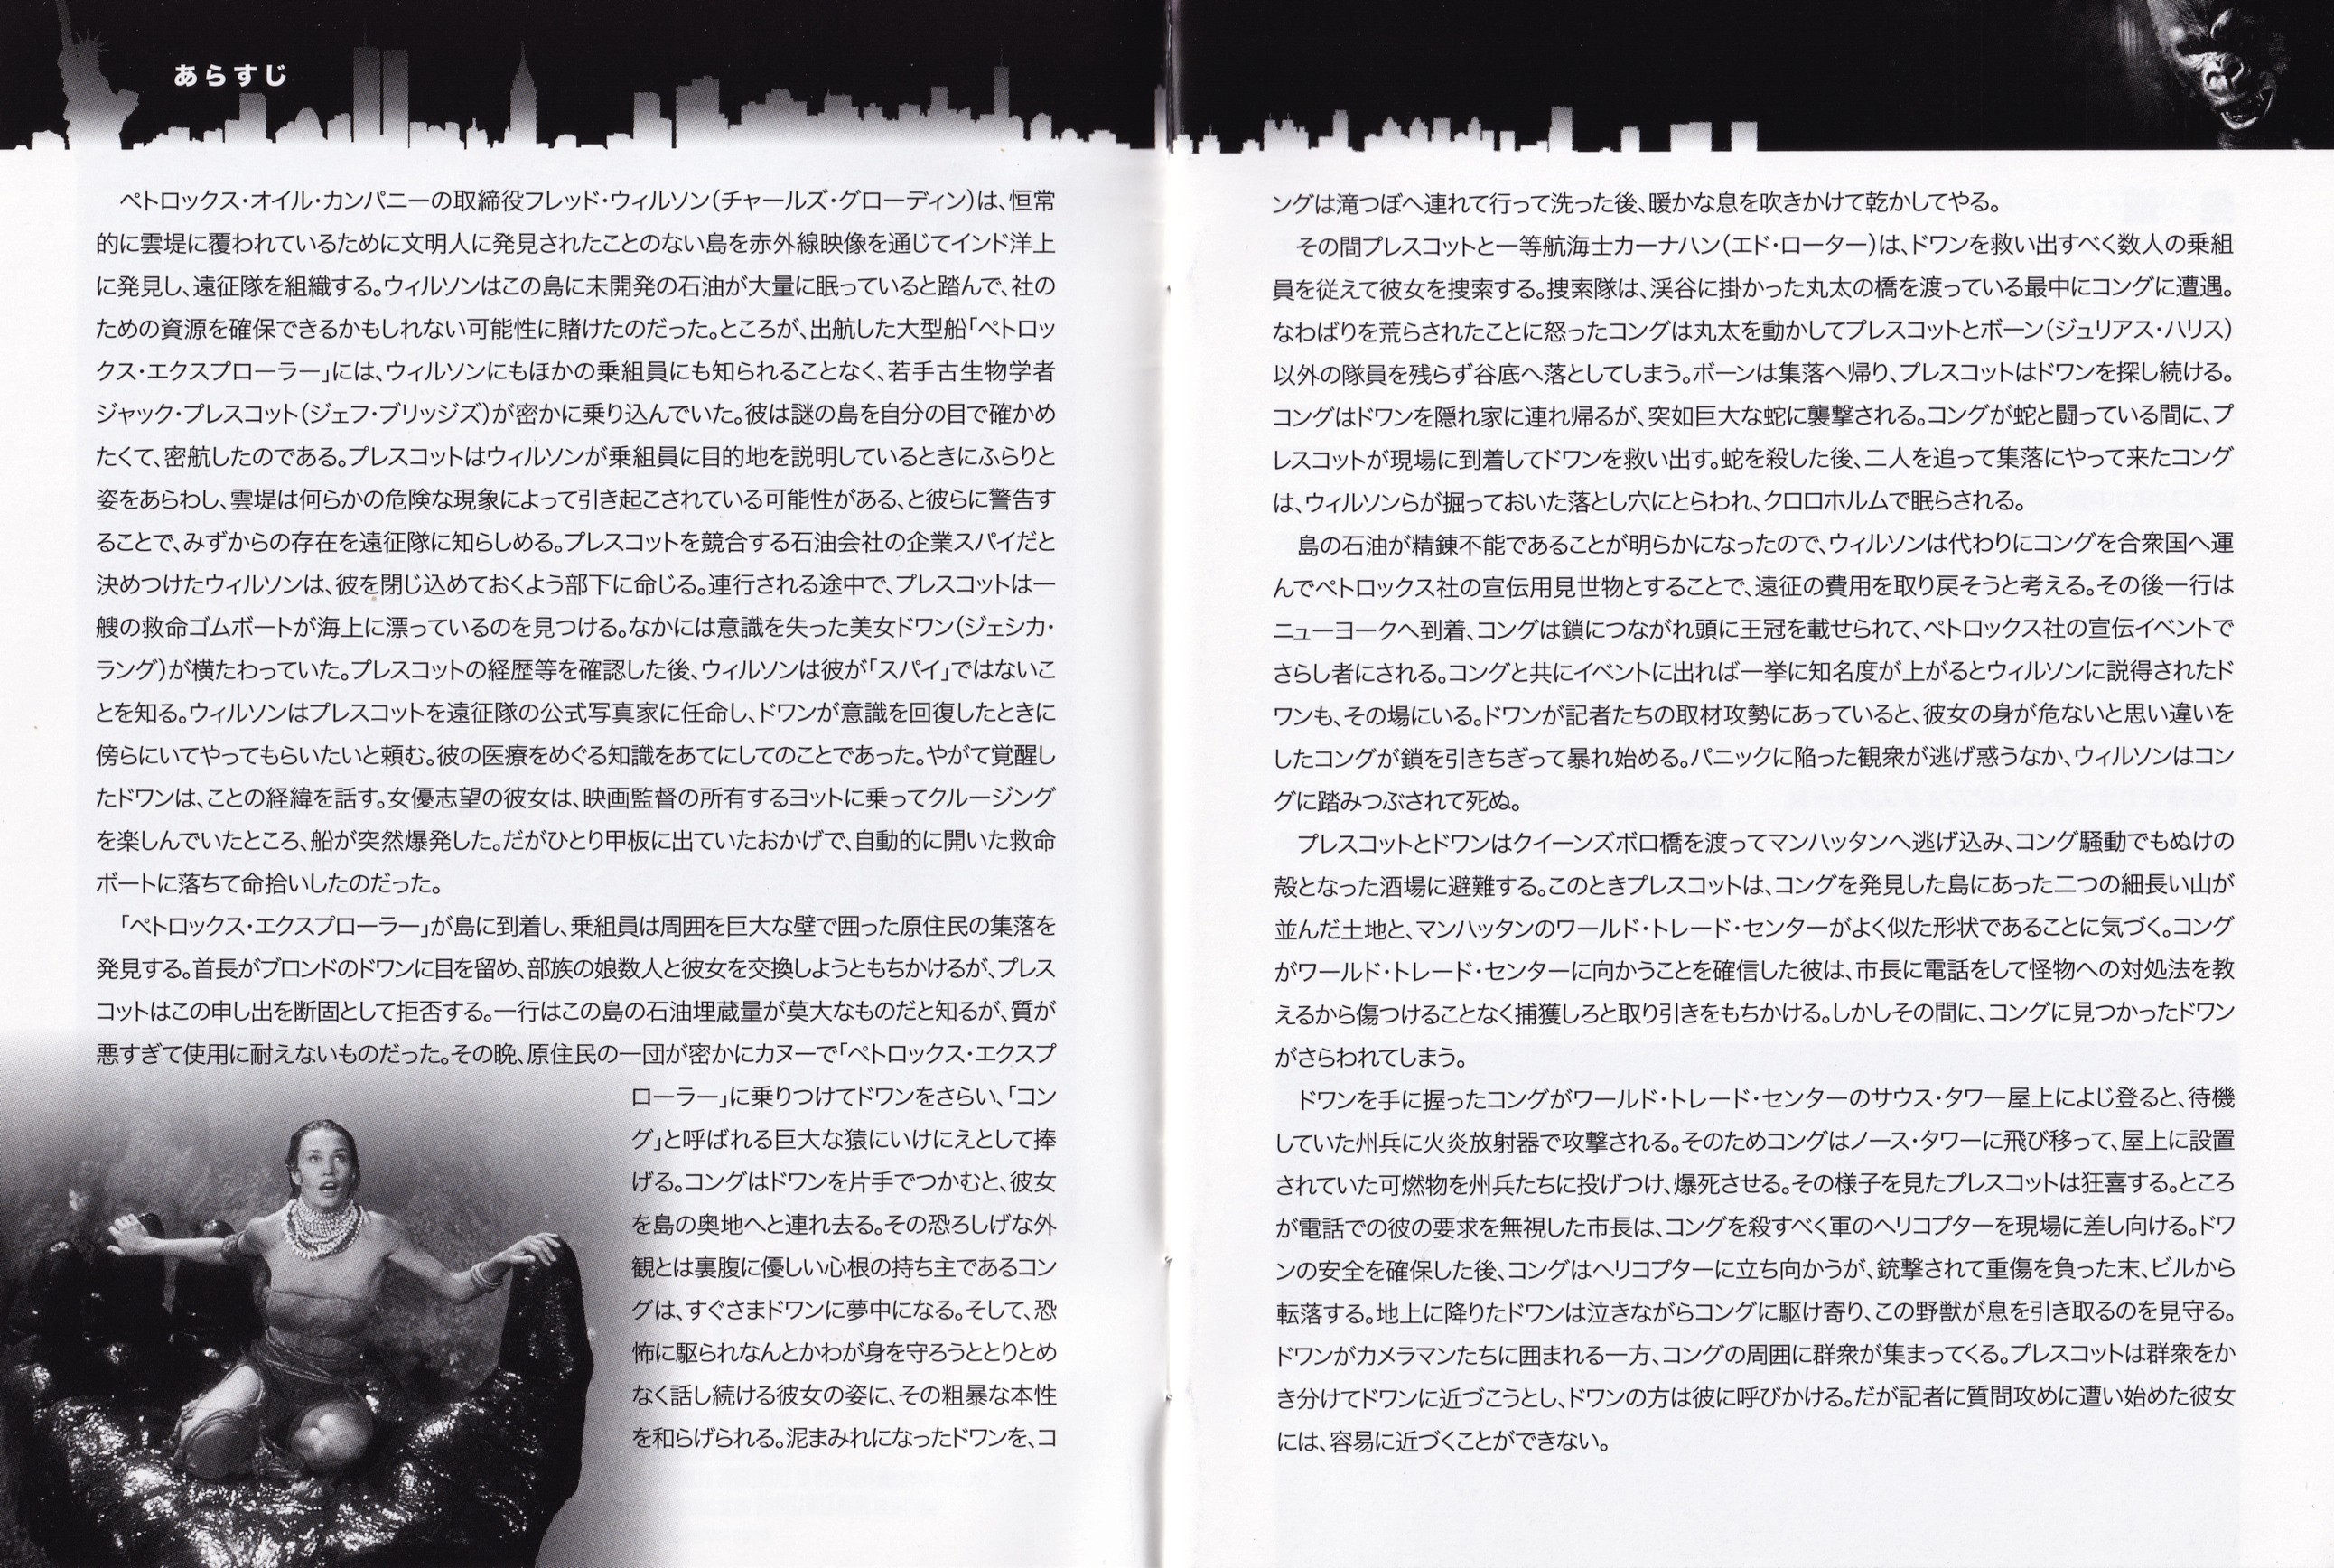 あらすじ
ペトロックス・オイル・カンパニーの取締役フレッド・ウィルソン(チャールズ・グローディン)は、恒常
的に雲堤に覆われているために文明人に発見されたことのない島を赤外線映像を通じてインド洋上
に発見し、遠征隊を組織する。ウィルソンはこの島に未開発の石油が大量に眠っていると踏んで、社の
ための資源を確保できるかもしれない可能性に賭けたのだった。ところが、出航した大型船「ペトロッ
クス・エクスプローラー」には、ウィルソンにもほかの乗組員にも知られることなく、若手古生物学者
ジャック・プレスコット(ジェフ・ブリッジズ)が密かに乗り込んでいた。彼は謎の島を自分の目で確かめ
たくて、密航したのである。プレスコットはウィルソンが乗組員に目的地を説明しているときにふらりと
姿をあらわし、雲堤は何らかの危険な現象によって引き起こされている可能性がある、と彼らに警告す
ることで、みずからの存在を遠征隊に知らしめる。プレスコットを競合する石油会社の企業スパイだと
決めつけたウィルソンは、彼を閉じ込めておくよう部下に命じる。連行される途中で、プレスコットは一
艘の救命ゴムボートが海上に漂っているのを見つける。なかには意識を失った美女ドワン(ジェシカ・
ラング)が横たわっていた。プレスコットの経歴等を確認した後、ウィルソンは彼が「スパイ」ではないこ
とを知る。ウィルソンはプレスコットを遠征隊の公式写真家に任命し、ドワンが意識を回復したときに
傍らにいてやってもらいたいと頼む。彼の医療をめぐる知識をあてにしてのことであった。やがて覚醒し
たドワンは、ことの経緯を話す。女優志望の彼女は、映画監督の所有するヨットに乗ってクルージング
を楽しんでいたところ、船が突然爆発した。だがひとり甲板に出ていたおかげで、自動的に開いた救命
ボートに落ちて命拾いしたのだった。
「ペトロックス・エクスプローラー」が島に到着し、乗組員は周囲を巨大な壁で囲った原住民の集落を
発見する。首長がブロンドのドワンに目を留め、部族の娘数人と彼女を交換しようともちかけるが、プレス
コットはこの申し出を断固として拒否する。一行はこの島の石油埋蔵量が莫大なものだと知るが、質が
悪すぎて使用に耐えないものだった。その晩、原住民の一団が密かにカヌーで「ペトロックス・エクスプ
ローラー」に乗りつけてドワンをさらい、「コン
グ」と呼ばれる巨大な猿にいけにえとして捧
げる。コングはドワンを片手でつかむと、彼女
を島の奥地へと連れ去る。その恐ろしげな外
観とは裏腹に優しい心根の持ち主であるコン
グは、すぐさまドワンに夢中になる。そして、恐
怖に駆られなんとかわが身を守ろうととりとめ
なく話し続ける彼女の姿に、その粗暴な本性
を和らげられる。泥まみれになったドワンを、コ
ングは滝つぼへ連れて行って洗った後、暖かな息を吹きかけて乾かしてやる。
その間プレスコットと一等航海士カーナハン(エド・ローター)は、ドワンを救い出すべく数人の乗組
員を従えて彼女を捜索する。捜索隊は、渓谷に掛かった丸太の橋を渡っている最中にコングに遭遇。
なわばりを荒らされたことに怒ったコングは丸太を動かしてプレスコットとボーン(ジュリアス・ハリス)
以外の隊員を残らず谷底へ落としてしまう。ボーンは集落へ帰り、プレスコットはドワンを探し続ける。
コングはドワンを隠れ家に連れ帰るが、突如巨大な蛇に襲撃される。コングが蛇と闘っている間に、プ
レスコットが現場に到着してドワンを救い出す。蛇を殺した後、二人を追って集落にやって来たコング
は、ウィルソンらが掘っておいた落とし穴にとらわれ、クロロホルムで眠らされる。
島の石油が精錬不能であることが明らかになったので、ウィルソンは代わりにコングを合衆国へ運
んでペトロックス社の宣伝用見世物とすることで、遠征の費用を取り戻そうと考える。その後一行は
ニューヨークへ到着、コングは鎖につながれ頭に王冠を載せられて、ペトロックス社の宣伝イベントで
さらし者にされる。コングと共にイベントに出れば一挙に知名度が上がるとウィルソンに説得されたド
ワンも、その場にいる。ドワンが記者たちの取材攻勢にあっていると、彼女の身が危ないと思い違いを
したコングが鎖を引きちぎって暴れ始める。パニックに陥った観衆が逃げ惑うなか、ウィルソンはコン
グに踏みつぶされて死ぬ。
プレスコットとドワンはクイーンズボロ橋を渡ってマンハッタンへ逃げ込み、コング騒動でもぬけの
殻となった酒場に避難する。このときプレスコットは、コングを発見した島にあった二つの細長い山が
並んだ土地と、マンハッタンのワールド・トレード・センターがよく似た形状であることに気づく。コング
がワールド・トレード・センターに向かうことを確信した彼は、市長に電話をして怪物への対処法を教
えるから傷つけることなく捕獲しろと取り引きをもちかける。しかしその間に、コングに見つかったドワン
がさらわれてしまう。
ドワンを手に握ったコングがワールド・トレード・センターのサウス・タワー屋上によじ登ると、待機
していた州兵に火炎放射器で攻撃される。そのためコングはノース・タワーに飛び移って、屋上に設置
されていた可燃物を州兵たちに投げつけ、爆死させる。その様子を見たプレスコットは狂喜する。ところ
が電話での彼の要求を無視した市長は、コングを殺すべく軍のヘリコプターを現場に差し向ける。ドワ
ンの安全を確保した後、コングはヘリコプターに立ち向かうが、銃撃されて重傷を負った末、ビルから
転落する。地上に降りたドワンは泣きながらコングに駆け寄り、この野獣が息を引き取るのを見守る。
ドワンがカメラマンたちに囲まれる一方、コングの周囲に群衆が集まってくる。プレスコットは群衆をか
き分けてドワンに近づこうとし、ドワンの方は彼に呼びかける。だが記者に質問攻めに遭い始めた彼女
には、容易に近づくことができない。